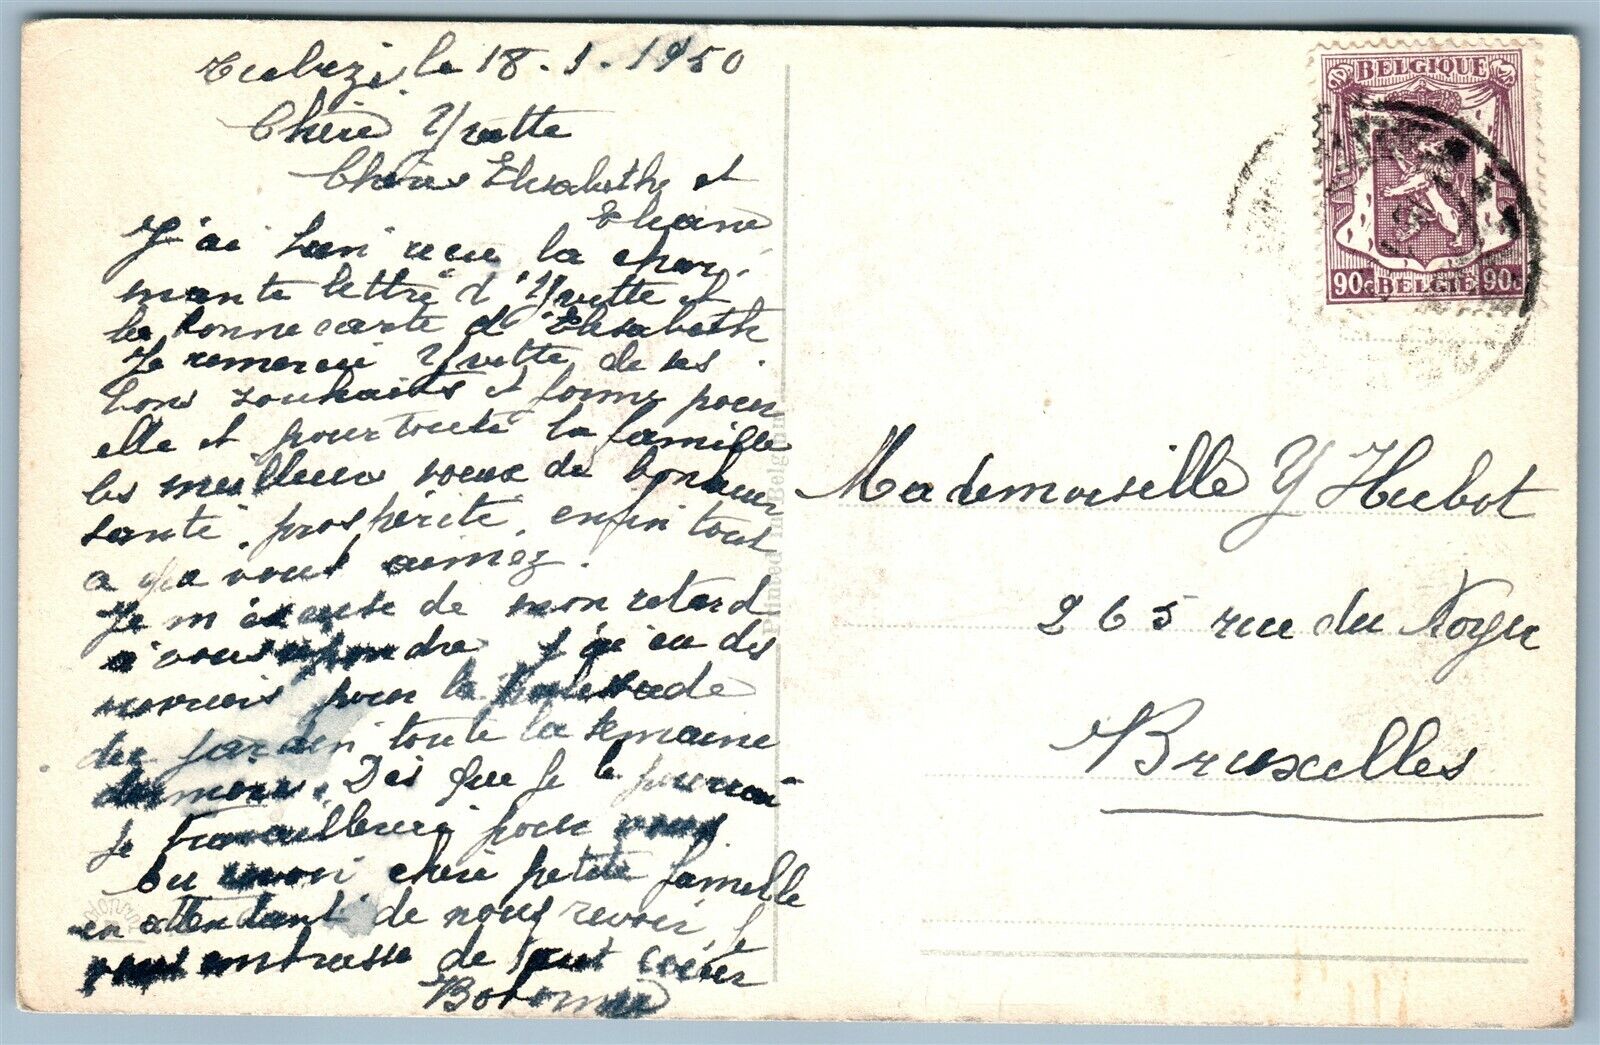 Tubize, le 18-1-1950
Chère Yvette
Chères Elisabethe et
Eliane,
J'ai bien recu la char-
mante lettre d'Yvette et
la bonne carte d'Elisabeth
Je remercie Yvette de ses
bons souhaits et forme pour
elle et pour toute la famille
les meilleurs voeux de bonheur
santé, prospérité, enfin tout
a que vous aimez.
Je m'excuse de mon retard
à vous répondre. J'ai eu des
pour la
du jardin toute la semaine
Dès que je le pourrai
je travaillerai pour vous
ou mon chère petite famille
en attendant de nous revoir, je
vous embrasse de tout coeur
BELGIQUE
90c BELGIE 90c
Mademoiselle Y Hubot
265 rue du Noyer
Bruxelles
Printed in Belgium